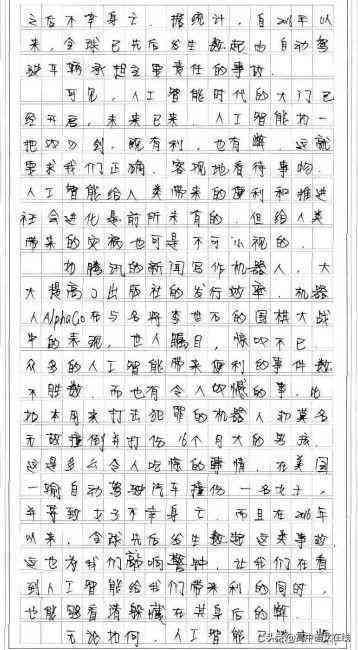 之后不幸身亡。据统计，自2016年以
来，全球已先后发生数起由自动驾
驶车辆承担主要责任的事故。
可见，人工智能时代的大门已
经开启，未来已来。人工智能如一
把双刃剑，既有利，也有弊。这就
要求我们正确、客观地看待事物。
人工智能给人类带来的便利和推进
社会进化是前所未有的，但给人类
带来的灾祸也可是不可小视的。
如腾讯的新闻写作机器人，大
大提高了出版社的发行效率。机器
人AlphaGo在与名将李世石的围棋大战
中的表现，世人瞩目，惊叹不已
众多的人工智能带来便利的事件数
不胜数。而也有令人叹憾的事，比
如本用来打击犯罪的机器人却莫名
无故撞倒并打伤16个月大的男孩。
这是多么令人吃惊的事情。在美国
一辆自动驾驶汽车撞伤一名女士，
并导致女子不幸身亡。而且在2016年
以来，全球先后发生数起这类事故
这也为我们敲响警钟，让我们在看
到人工智能给我们带来利的同时，
也能够看清躲藏在其身后的弊。
无论如何，人工智能已
头条@高中语文在线